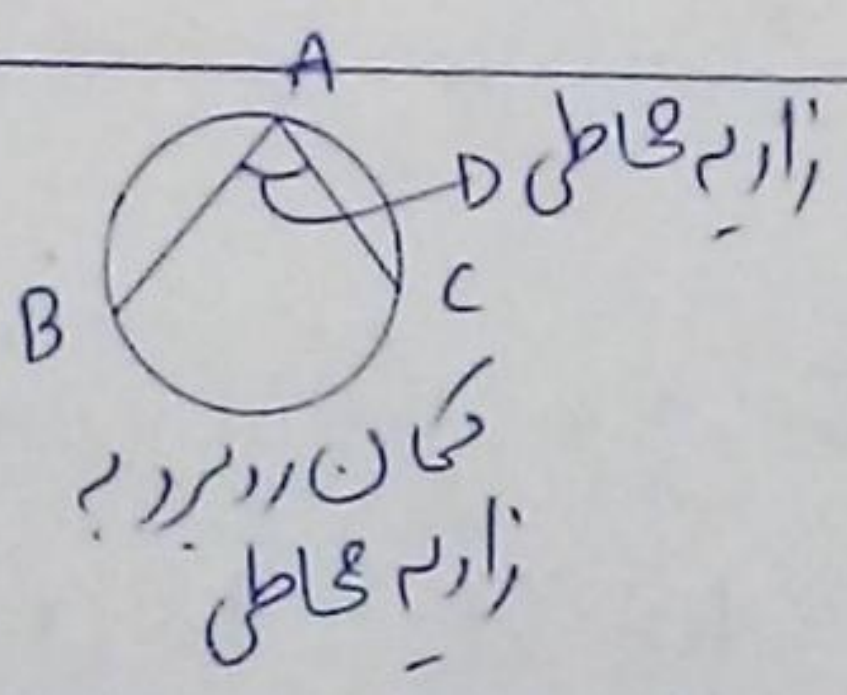 A
D زاویه محاطی
C
B
کمان روبرو به
زاویه محاطی